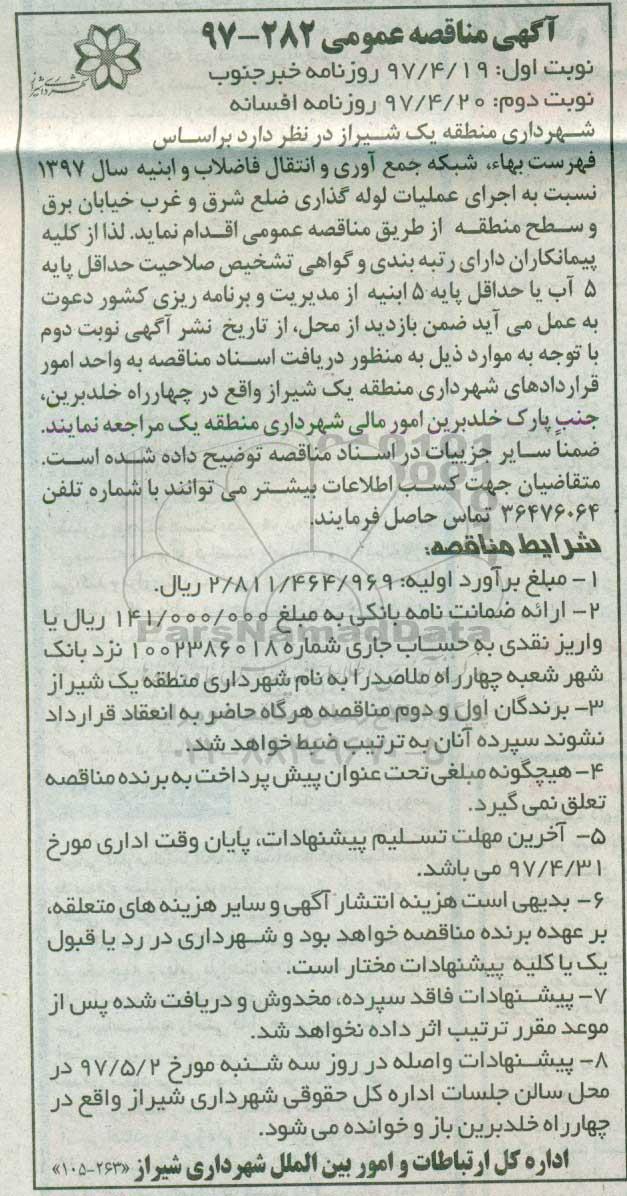 آگهی مناقصه عمومی ۲۸۲-۹۷
نوبت اول: ۹۷/۴/۱۹ روزنامه خبرجنوب
نوبت دوم: ۹۷/۴/۲۰ روزنامه افسانه
شهرداری منطقه یک شیراز در نظر دارد براساس
فهرست بهاء، شبکه جمع آوری و انتقال فاضلاب و ابنیه سال ۱۳۹۷
نسبت به اجرای عملیات لوله گذاری ضلع شرق و غرب خیابان برق
و سطح منطقه از طریق مناقصه عمومی اقدام نماید. لذا از کلیه
پیمانکاران دارای رتبه بندی و گواهی تشخیص صلاحیت حداقل پایه
۵ آب یا حداقل پایه ۵ ابنیه از مدیریت و برنامه ریزی کشور دعوت
به عمل می آید ضمن بازدید از محل، از تاریخ نشر آگهی نوبت دوم
با توجه به موارد ذیل به منظور دریافت اسناد مناقصه به واحد امور
قراردادهای شهرداری منطقه یک شیراز واقع در چهارراه خلدبرین،
جنب پارک خلدبرین امور مالی شهرداری منطقه یک مراجعه نمایند.
ضمناً سایر جزییات در اسناد مناقصه توضیح داده شده است.
متقاضیان جهت کسب اطلاعات بیشتر می توانند با شماره تلفن
۳۶۴۷۶۰۶۴ تماس حاصل فرمایند.
شرایط مناقصه:
۱- مبلغ برآورد اولیه: ۲/۸۱۱/۴۶۴/۹۶۹ ریال.
۲- ارائه ضمانت نامه بانکی به مبلغ ۱۴۱/۰۰۰/۰۰۰ ریال یا
واریز نقدی به حساب جاری شماره ۱۰۰۲۳۸۶۰۱۸ نزد بانک
شهر شعبه چهارراه ملاصدرا به نام شهرداری منطقه یک شیراز
۳- برندگان اول و دوم مناقصه هرگاه حاضر به انعقاد قرارداد
نشوند سپرده آنان به ترتیب ضبط خواهد شد.
۴- هیچگونه مبلغی تحت عنوان پیش پرداخت به برنده مناقصه
تعلق نمی گیرد.
۵- آخرین مهلت تسلیم پیشنهادات، پایان وقت اداری مورخ
۹۷/۴/۳۱ می باشد.
۶- بدیهی است هزینه انتشار آگهی و سایر هزینه های متعلقه،
بر عهده برنده مناقصه خواهد بود و شهرداری در رد یا قبول
یک یا کلیه پیشنهادات مختار است.
۷- پیشنهادات فاقد سپرده، مخدوش و دریافت شده پس از
موعد مقرر ترتیب اثر داده نخواهد شد.
۸- پیشنهادات واصله در روز سه شنبه مورخ ۹۷/۵/۲ در
محل سالن جلسات اداره کل حقوقی شهرداری شیراز واقع در
چهارراه خلدبرین باز و خوانده می شود.
اداره کل ارتباطات و امور بین الملل شهرداری شیراز «۲۶۳-۱۰۵»
ParsNamadData